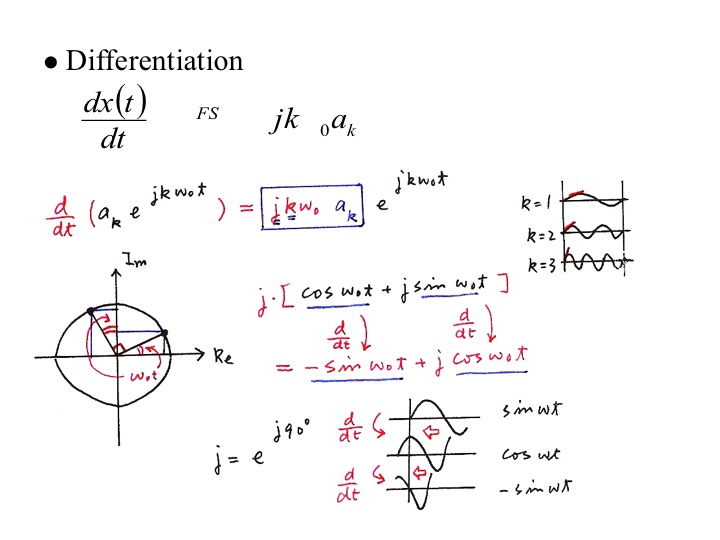 ● Differentiation
dx(t)/dt FS jk ₀aₖ
d/dt (aₖ e^{jkw₀t}) = jkw₀ aₖ e^{jkw₀t}
k=1
k=2
k=3
Im
Re
w₀t
j·[cos w₀t + j sin w₀t]
d/dt d/dt
= -sin w₀t + j cos w₀t
j = e^{j90°}
d/dt
sin wt
cos wt
d/dt
-sin wt